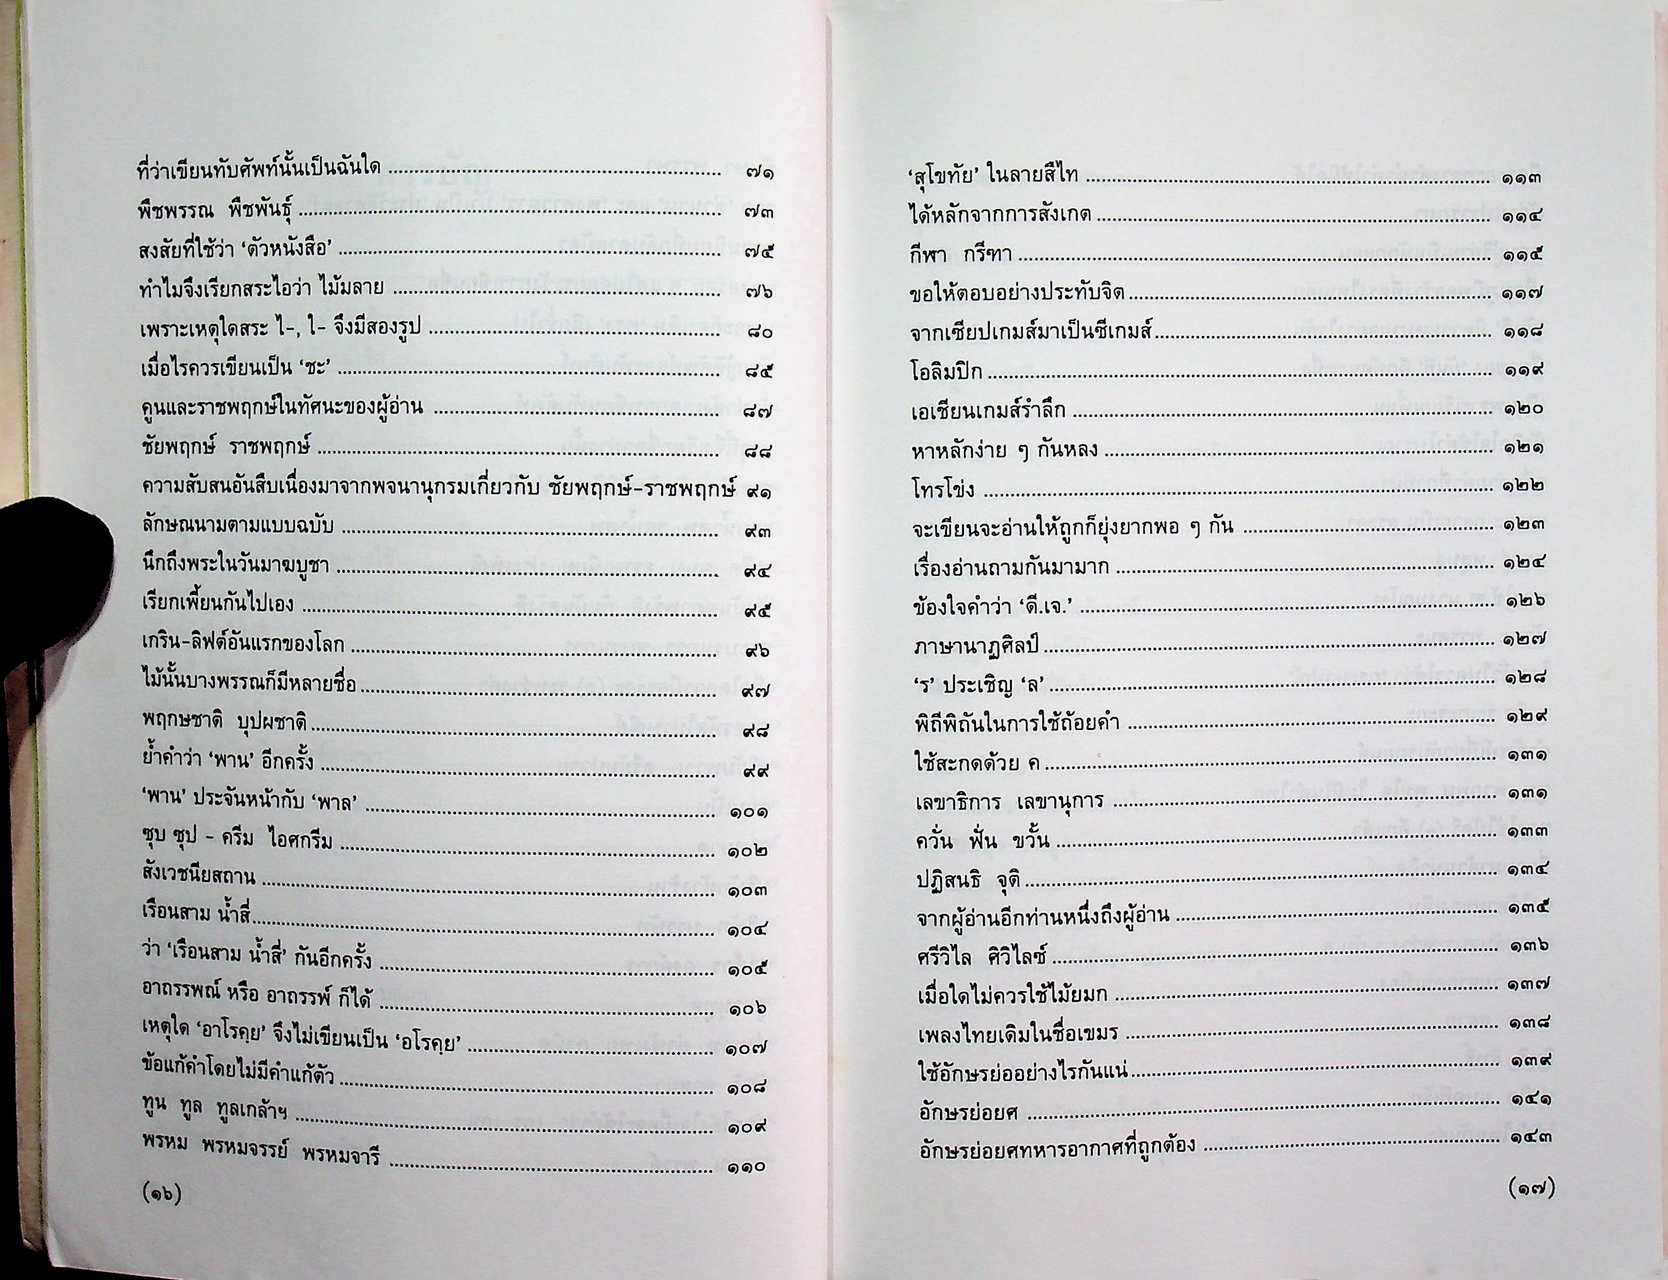 ที่ว่าเขียนทับศัพท์นั้นเป็นฉันใด ๗๑
พืชพรรณ พืชพันธุ์ ๗๓
สงสัยที่ใช้ว่า ‘ตัวหนังสือ’ ๗๕
ทำไมจึงเรียกสระไอว่า ไม้มลาย ๗๖
เพราะเหตุใดสระ ไ-, ใ- จึงมีสองรูป ๘๐
เมื่อไรควรเขียนเป็น ‘ชะ’ ๘๕
คูนและราชพฤกษ์ในทัศนะของผู้อ่าน ๘๗
ชัยพฤกษ์ ราชพฤกษ์ ๘๘
ความสับสนอันสืบเนื่องมาจากพจนานุกรมเกี่ยวกับ ชัยพฤกษ์-ราชพฤกษ์ ๙๑
ลักษณนามตามแบบฉบับ ๙๓
นึกถึงพระในวันมาฆบูชา ๙๔
เรียกเพี้ยนกันไปเอง ๙๕
เกริน-ลิฟต์อันแรกของโลก ๙๖
ไม้นั้นบางพรรณก็มีหลายชื่อ ๙๗
พฤกษชาติ บุปผชาติ ๙๘
ย้ำคำว่า ‘พาน’ อีกครั้ง ๙๙
‘พาน’ ประจันหน้ากับ ‘พาล’ ๑๐๑
ซุบ ซุป - ครีม ไอศกรีม ๑๐๒
สังเวชนียสถาน ๑๐๓
เรือนสาม น้ำสี่ ๑๐๔
ว่า ‘เรือนสาม น้ำสี่’ กันอีกครั้ง ๑๐๕
อาถรรพณ์ หรือ อาถรรพ์ ก็ได้ ๑๐๖
เหตุใด ‘อาโรคฺย’ จึงไม่เขียนเป็น ‘อโรคฺย’ ๑๐๗
ข้อแก้คำโดยไม่มีคำแก้ตัว ๑๐๘
ทูน ทูล ทูลเกล้าฯ ๑๐๙
พรหม พรหมจรรย์ พรหมจารี ๑๑๐
(๑๖)
‘สุโขทัย’ ในลายสือไท ๑๑๓
ได้หลักจากการสังเกต ๑๑๔
กีฬา กรีฑา ๑๑๕
ขอให้ตอบอย่างประทับจิต ๑๑๗
จากเซียปเกมส์มาเป็นซีเกมส์ ๑๑๘
โอลิมปิก ๑๑๙
เอเชียนเกมส์รำลึก ๑๒๐
หาหลักง่าย ๆ กันหลง ๑๒๑
โทรโข่ง ๑๒๒
จะเขียนจะอ่านให้ถูกก็ยุ่งยากพอ ๆ กัน ๑๒๓
เรื่องอ่านถามกันมามาก ๑๒๔
ข้องใจคำว่า ‘ดี.เจ.’ ๑๒๖
ภาษานาฏศิลป์ ๑๒๗
‘ร’ ประเชิญ ‘ล’ ๑๒๘
พิถีพิถันในการใช้ถ้อยคำ ๑๒๙
ใช้สะกดด้วย ค ๑๓๑
เลขาธิการ เลขานุการ ๑๓๑
ควั่น ฟั่น ขวั้น ๑๓๓
ปฏิสนธิ จุติ ๑๓๔
จากผู้อ่านอีกท่านหนึ่งถึงผู้อ่าน ๑๓๕
ศรีวิไล ศิวิไลซ์ ๑๓๖
เมื่อใดไม่ควรใช้ไม้ยมก ๑๓๗
เพลงไทยเดิมในชื่อเขมร ๑๓๘
ใช้อักษรย่ออย่างไรกันแน่ ๑๓๙
อักษรย่อยศ ๑๔๑
อักษรย่อยศทหารอากาศที่ถูกต้อง ๑๔๓
(๑๗)